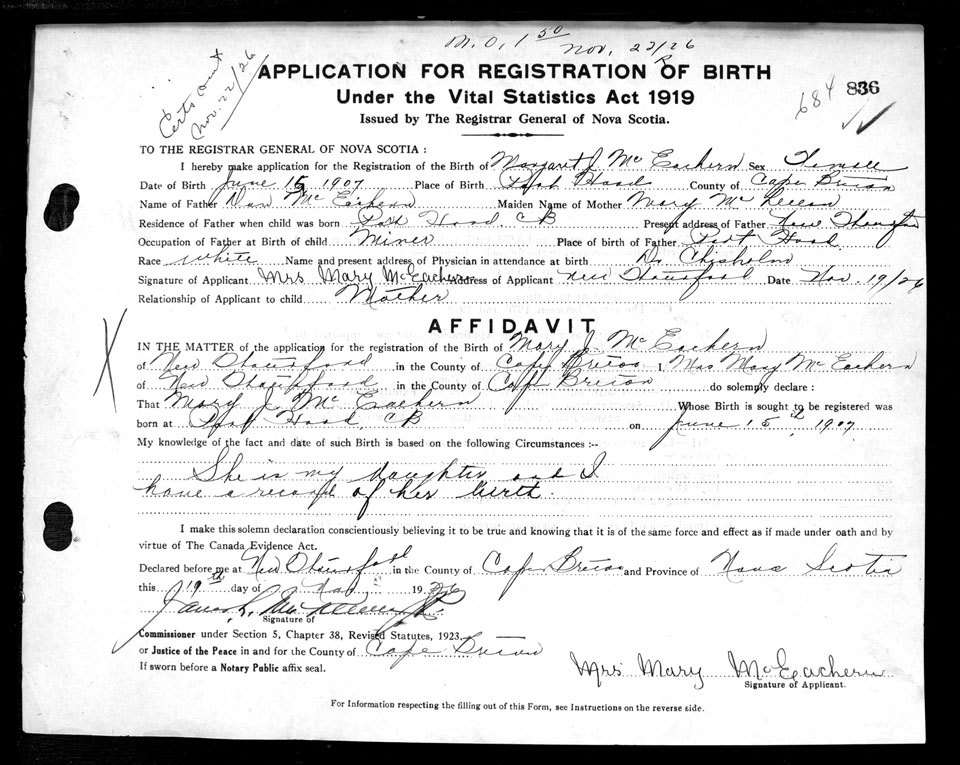 M.O. 1 50 Nov. 22/26
Certs out
Nov. 22/26
684 836
APPLICATION FOR REGISTRATION OF BIRTH
Under the Vital Statistics Act 1919
Issued by The Registrar General of Nova Scotia.
TO THE REGISTRAR GENERAL OF NOVA SCOTIA :
I hereby make application for the Registration of the Birth of Margaret J. McEachern Sex Female
Date of Birth June 15 1907 Place of Birth Port Hood County of Cape Breton
Name of Father Dan McEachern Maiden Name of Mother Mary
Residence of Father when child was born Port Hood, CB Present address of Father New
Occupation of Father at Birth of child Miner Place of birth of Father Port Hood
Race white Name and present address of Physician in attendance at birth Dr Chisholm
Signature of Applicant Mrs Mary McEachern Address of Applicant New Date Nov. 19/26
Relationship of Applicant to child Mother
AFFIDAVIT
IN THE MATTER of the application for the registration of the Birth of Mary J. McEachern
of New in the County of Cape Breton I, Mrs Mary McEachern
of New in the County of Cape Breton do solemnly declare :
That Mary J. McEachern Whose Birth is sought to be registered was
born at Port Hood, CB on June 15 1907
My knowledge of the fact and date of such Birth is based on the following Circumstances :--
She is my daughter and I
have a record of her birth.
I make this solemn declaration conscientiously believing it to be true and knowing that it is of the same force and effect as if made under oath and by
virtue of The Canada Evidence Act.
Declared before me at New in the County of Cape Breton and Province of Nova Scotia
this 19th day of Nov 1926
James
Signature of
Commissioner under Section 5, Chapter 38, Revised Statutes, 1923.
or Justice of the Peace in and for the County of Cape Breton
If sworn before a Notary Public affix seal.
Mrs Mary McEachern
Signature of Applicant.
For Information respecting the filling out of this Form, see Instructions on the reverse side.